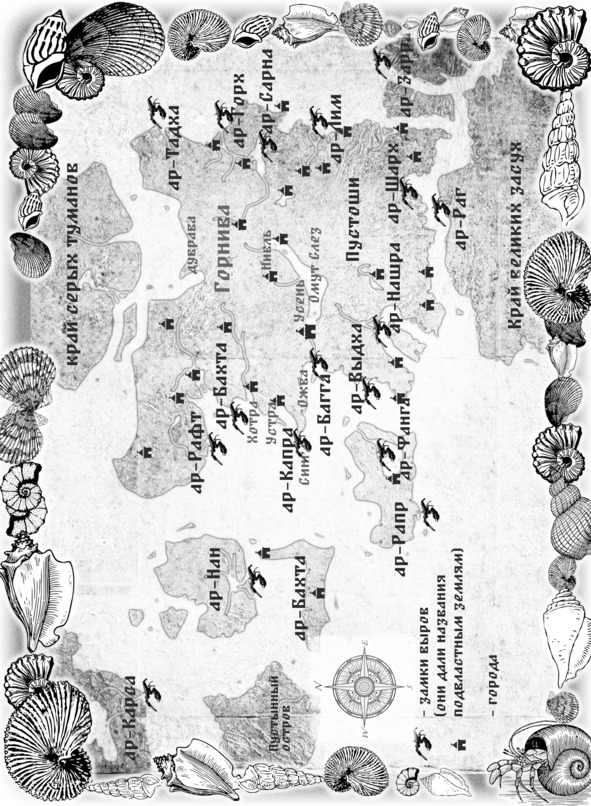 край серых туманов
ар-Карад
ар-Тадха
дубрава
ар-Рафт
ар-Нан
Горнива
ар-Бахта
ар-Горх
Хотра
ар-Сарна
Нивль
Усень
Омут Слез
Ожва
ар-Капра
ар-Багта
ар-Бахта
Пустынный
остров
ар-Лим
Пустоши
ар-Выдха
ар-Шарх
ар-Нашра
ар-Фанга
ар-Рапр
ар-Раг
Край великих засух
N
E
S
W
- замки выров
(они дали названия
подвластным землям)
- города